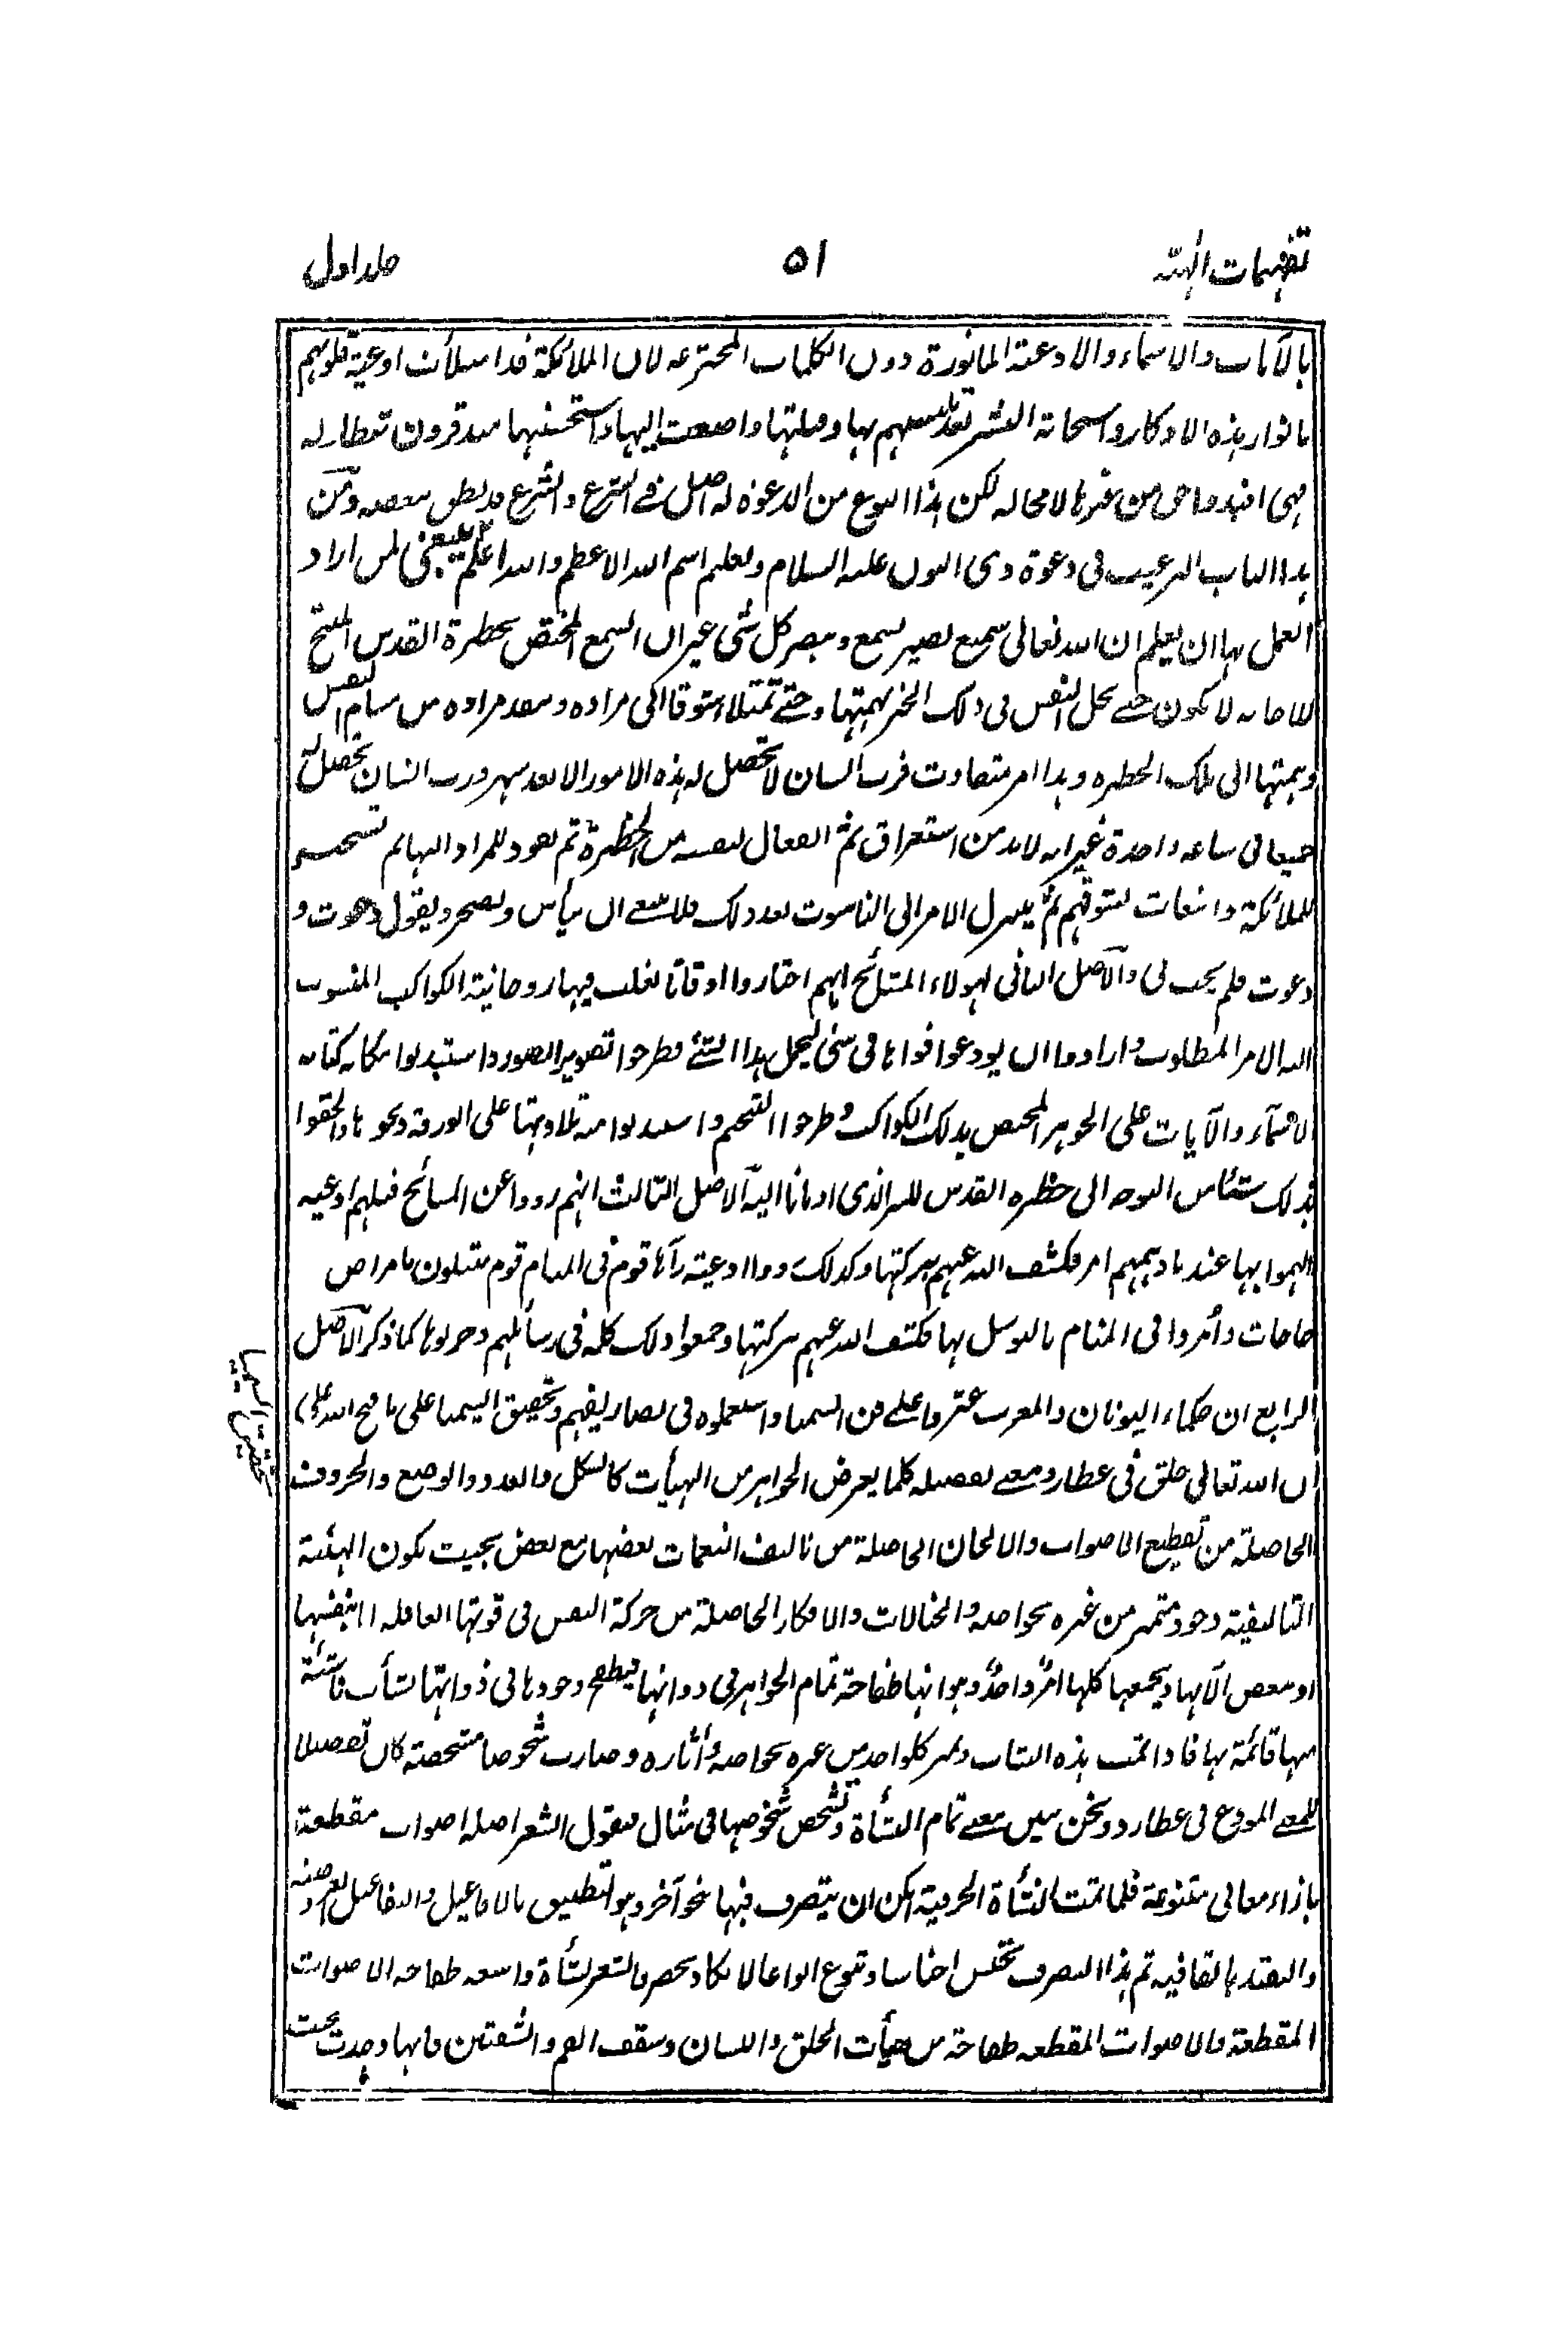 تفہیمات الٰہیہ
۵۱
جلد اول
بالآيات والاسماء والادعية الماثورة دون الكلمات المخترعة لان الملائكة قد امتلأت اوعية قلوبهم
بانوار هذه الاذكار واستحانة البشر بها وملتها واصغت اليها واستحسنتها منذ قرون متطاولة
فهى افيد وانجى من غيرها لا محالة لكن هذا النوع من الدعوة له اصل فى الشرع والشرع قد نطق ببعضه ومن
هذا الباب الترغيب فى دعوة ذى النون عليه السلام وتعليم اسم الله الاعظم والله اعلم ينبغى لمن اراد
العمل بها ان يعلم ان الله تعالى سميع بصير يسمع ويبصر كل شئ غير ان السمع المختص بحظيرة القدس المنتج
للاجابة لا يكون حتے تحل النفس فى ذلك الخير بهمتها وحتے تمتلأ شوقا الى مراده وينفد مراده من مسام النفس
وهمتها الى تلك الحظيرة وهذا امر متفاوت فرب انسان لا تحصل له هذه الامور الا بعد شهر ورب انسان تحصل له
جميعا فى ساعة واحدة غير انه لا بد من استغراق ثم انفعال لنفسه من الحظيرة ثم يعود للمراد الهائم
للملائكة وانبعاث لشوقهم ثم ينزل الامر الى الناسوت بعد ذلك فلا ينبغے ان ييأس ويضجر ويقول دعوت و
دعوت فلم يجب لى والاصل الثانى لهولاء المشائخ انهم اختاروا اوقاتا تغلب فيها روحانية الكواكب المنسوب
اليه الامر المطلوب وارادوا ان يودعوا قواها فى شئ يحمل هذا الشئ فطرحوا تصوير الصور واستبدلوا مكانه كتابة
الاسماء والآيات على الجوهر المختص بذلك الكواكب وطرحوا التنجيم واستبدلوا منه تلاوتها على الورقة ونحوها والحقوا
بذلك ستئاس التوجه الى حظيرة القدس للسر الذى اومانا اليه الاصل الثالث انهم رووا عن المشائخ قبلهم ادعية
الهموا بها عند ما دهمهم امر فكشف الله عنهم ببركتها وكذلك رووا ادعية رآها قوم فى المنام قوم مبتلون بامراض
حاجات وأمروا فى المنام بالتوسل بها فكشف الله عنهم ببركتها وجمعوا ذلك كله فى رسائلهم وجربوها كما ذكر الاصل
الرابع ان حكماء اليونان والمغرب عثروا علے فن السيميا واستعملوه فى تصاريفهم وتحقيق السيميا على ما فتح الله علىّ
ان الله تعالى خلق فى عطارد معنے تفصيله كلما يعرض الجواهر من الهيأت كالشكل والعدد والوضع والحروف
الحاصلة من تقطيع الاصوات والالحان الحاصلة من تاليف النغمات بعضها مع بعض بحيث تكون الهيئة
التاليفية وجود متميز من غيره بخواصه والخيالات والافكار الحاصلة من حركة النفس فى قوتها العاقلة اما بنفسها
او ببعض آلاتها ويجمعها كلها امر واحد وهو انها طفاحة تمام الجواهر فى ذواتها فيطفح وجودها فى ذواتها نشأت ناشئة
منها قائمة بها فاذا تمت هذه النشأت وتميز كلواحد من غيره بخواصه وآثاره وصارت شخوصا متشخصة كان تفصيلا
للمعنے المودع فى عطارد ونحن نبين معنے تمام النشأة وتشخص شخوصها فى مثال فنقول الشعر اصله اصوات مقطعة
بازاء معانى متنوعة فلما تمت النشأة الحرفية امكن ان يتصرف فيها نحو آخر وهو التطبيق بالافاعيل والتفاعيل العروضية
والتقيد بالقافية ثم هذا التصرف تجنس اجناسا وتنوع انواعا لا تكاد تحصر فالشعر نشأة واسعة طفاحة الاصوات
المقطعة والاصوات المقطعة طفاحة من هيأت الحلق واللسان وسقف الفم والشفتين فانها وجدت بحيث
تحقيق السيميا